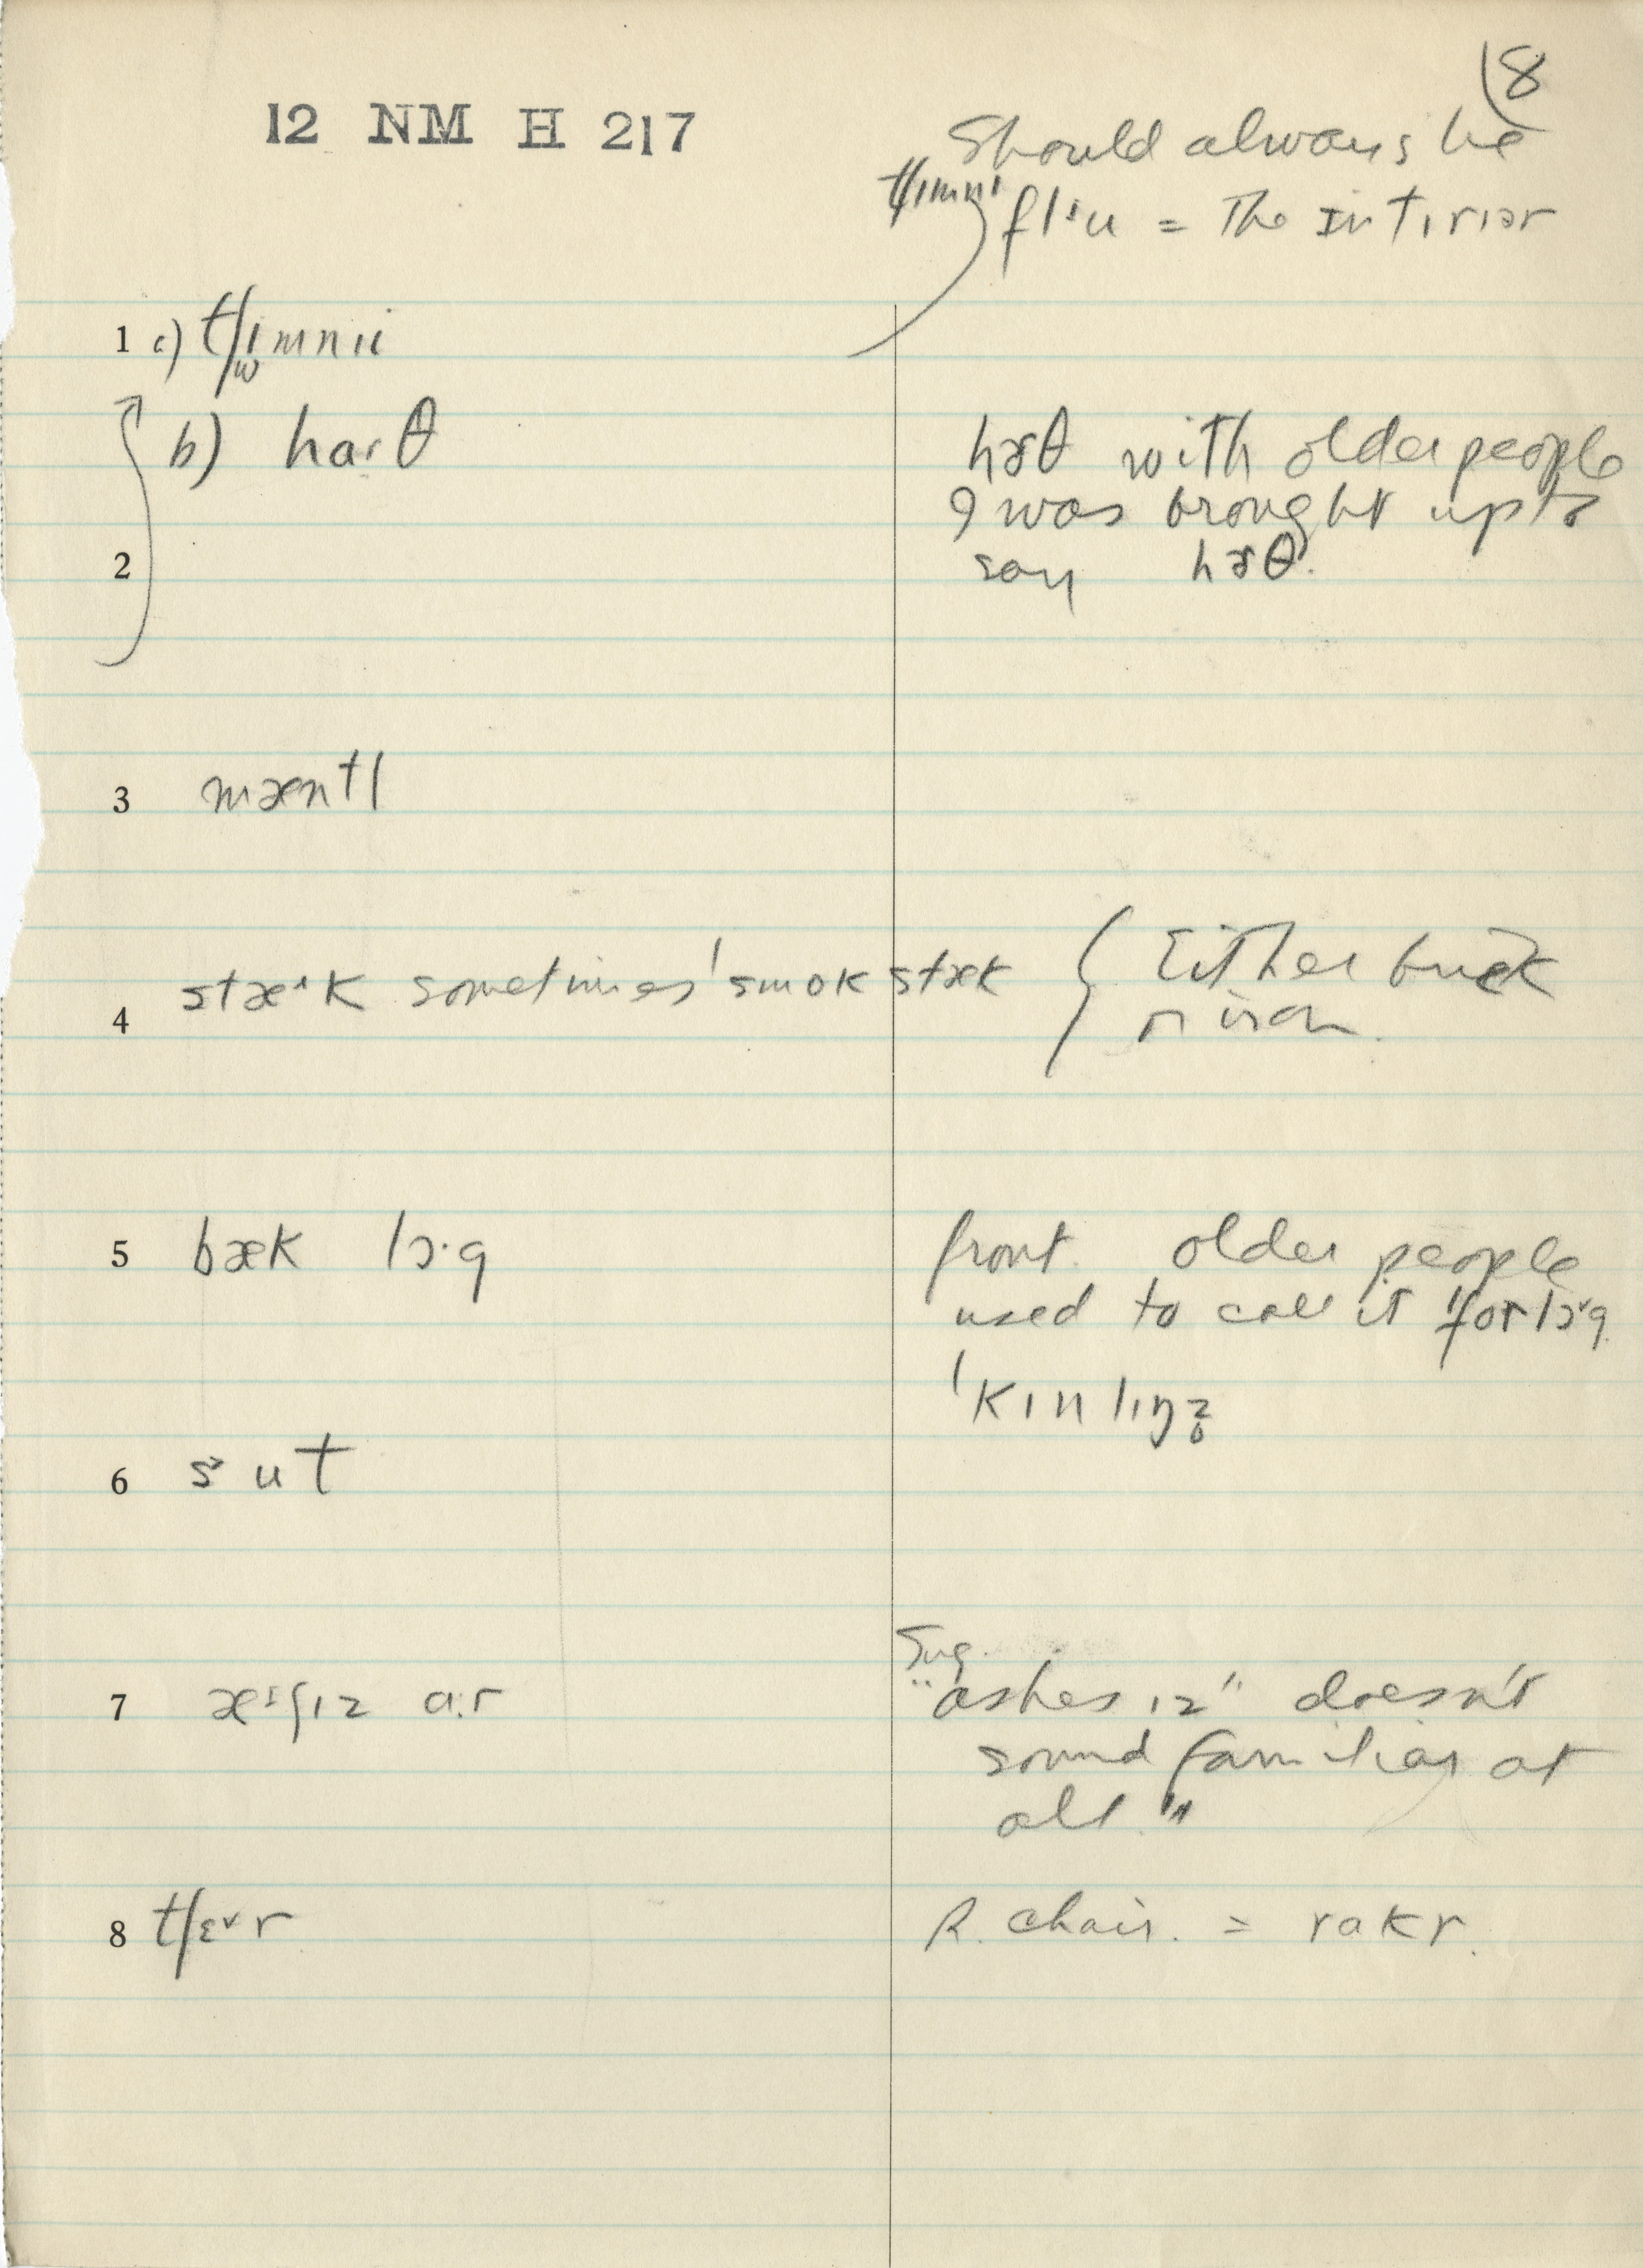 8
12 NM H 217
Should always be
tʃɪmnɪ flˈu = The Intɪrɪər
1 c) tʃɪmnɪi
b) harθ
hɝθ with older people
I was brought up to
2
say hɝθ.
3 mæntl
4 stæ˄k sometimes ˈsmokstæk { Either brick
or iron.
5 bæk lɔ·g
front. older people
used to call it ˈforlɔ˅g
ˈkɪnlɪŋz̥
6 s ut
7 æʃɪz a:r
Sug.
"ashes ɪz" doesn't
sound familiar at
all."
8 tʃɛ˅r
R. chair. = rakr.